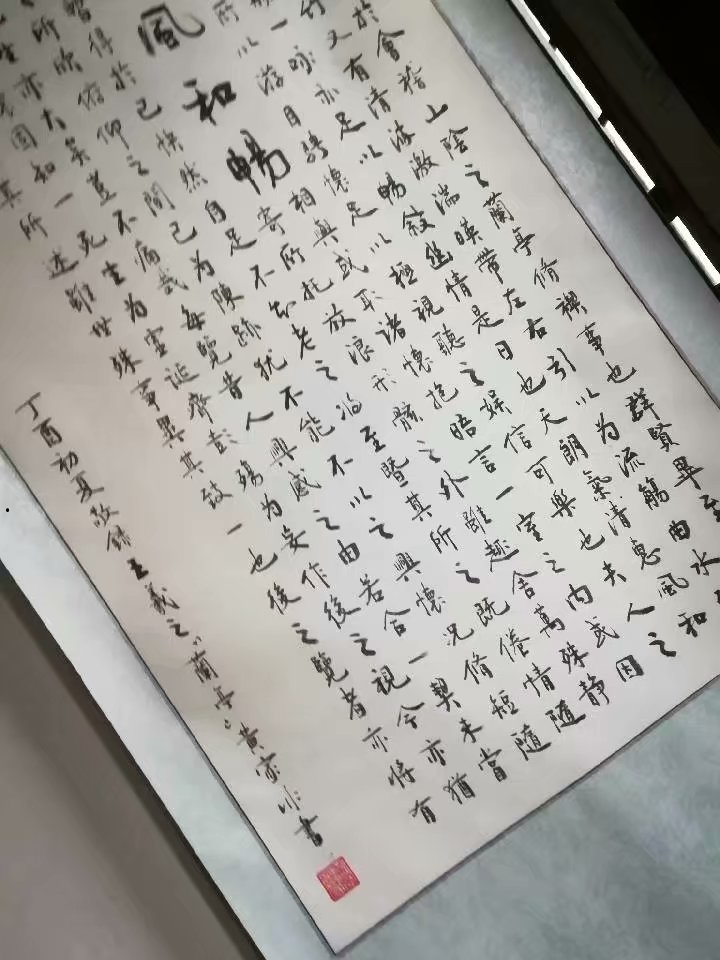 於會稽山陰之蘭亭脩禊事也群賢畢至
又有清流激湍暎帶左右引以為流觴曲水
一詠亦足以暢敘幽情是日也天朗氣清惠風和
所以游目騁懷足以極視聽之娛信可樂也夫人之
風和暢
相與或取諸懷抱晤言一室之內或因
寄所托放浪形骸之外雖趣舍萬殊靜
暫得於己快然自足不知老之將至暨其所之既倦情隨
所欣俯仰之間已為陳跡猶不能不以之興懷況脩短隨
生亦大矣豈不痛哉每覽昔人興感之由若合一契未當
固知一死生為虛誕齊彭殤為妄作後之視今亦猶
其所述雖世殊事異其致一也後之覽者亦將有
丁酉初夏敬錄王羲之蘭亭黃家書